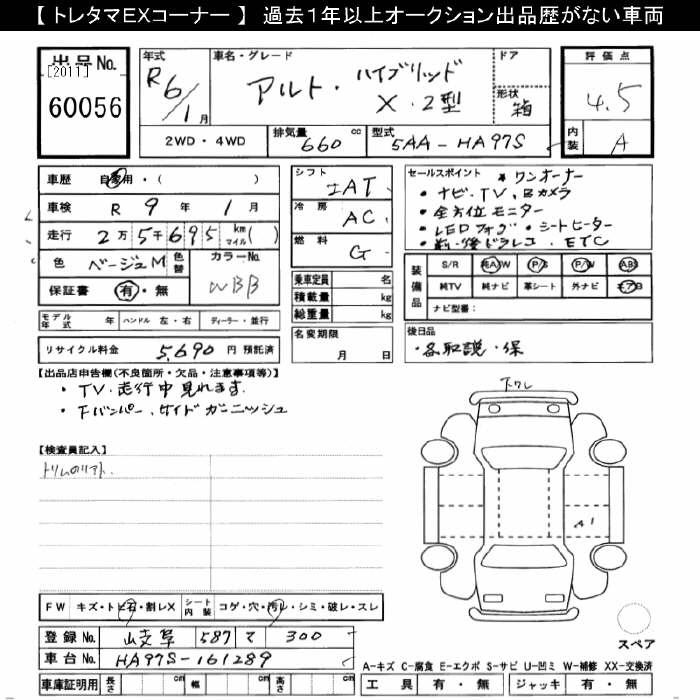 【 トレタマEXコーナー 】 過去1年以上オークション出品歴がない車両
出品No.
[2011]
60056
年式
R6/1月
車名・グレード
アルト・ハイブリッド
X・2型
ドア
形状
箱
評価点
4.5
内装
A
2WD・4WD
排気量 660 cc
型式 5AA-HA97S
車歴 自家用・( )
車検 R 9年 1月
走行 2万5千695 km マイル( )
色 ベージュM 色替
カラーNo. WBB
保証書 有・無
シフト IAT
冷房 AC
燃料 G
乗車定員 名
積載量 kg
総重量 kg
セールスポイント ・ワンオーナー
・ナビ・TV、Bカメラ
・全方位モニター
・LEDフォグ・シートヒーター
・前・後ドラレコ、ETC
装備品
S/R 純A/W P/S P/W ABS
純TV 純ナビ 革シート 外ナビ エアB
ナビ型番:
モデル年式 年 ハンドル 左・右 ディーラー・並行
リサイクル料金 5,690 円 預託済
名変期限 月 日
後日品
・各取説・保
【出品店申告欄(不良箇所・欠品・注意事項等)】
・TV・走行中見れます.
・Fバンパー、サイドガーニッシュ
下ワレ
【検査員記入】
A1
FW キズ・トビ石・割レX シート内装 コゲ・穴・汚レ・シミ・破レ・スレ
登録No. 岐阜 587 て 300
車台No. HA97S-161289
スペア
A-キズ C-腐食 E-エクボ S-サビ U-凹ミ W-補修 XX-交換済
車庫証明用 長さ cm 幅 cm 高さ cm
工具 有・無 ジャッキ 有・無